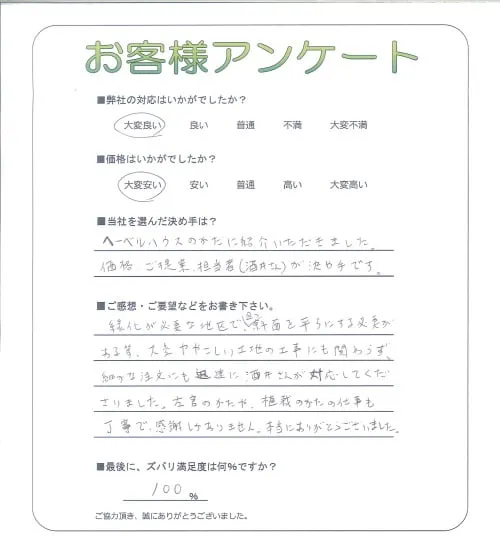 お客様アンケート
■弊社の対応はいかがでしたか？
大変良い 良い 普通 不満 大変不満
■価格はいかがでしたか？
大変安い 安い 普通 高い 大変高い
■当社を選んだ決め手は？
ヘーベルハウスのかたに紹介いただきました。
価格、ご提案、担当者(酒井さん)が決め手です。
■ご感想・ご要望などをお書き下さい。
緑化が必要な地区で、斜面を平らにする必要が
ある等、大変ややこしい土地の工事にも関わらず、
細かな注文にも迅速に、酒井さんが対応してくだ
さりました。左官のかたや、植栽のかたの仕事も
丁寧で、感謝しかありません。本当にありがとうございました。
■最後に、ズバリ満足度は何%ですか？
100 %
ご協力頂き、誠にありがとうございました。